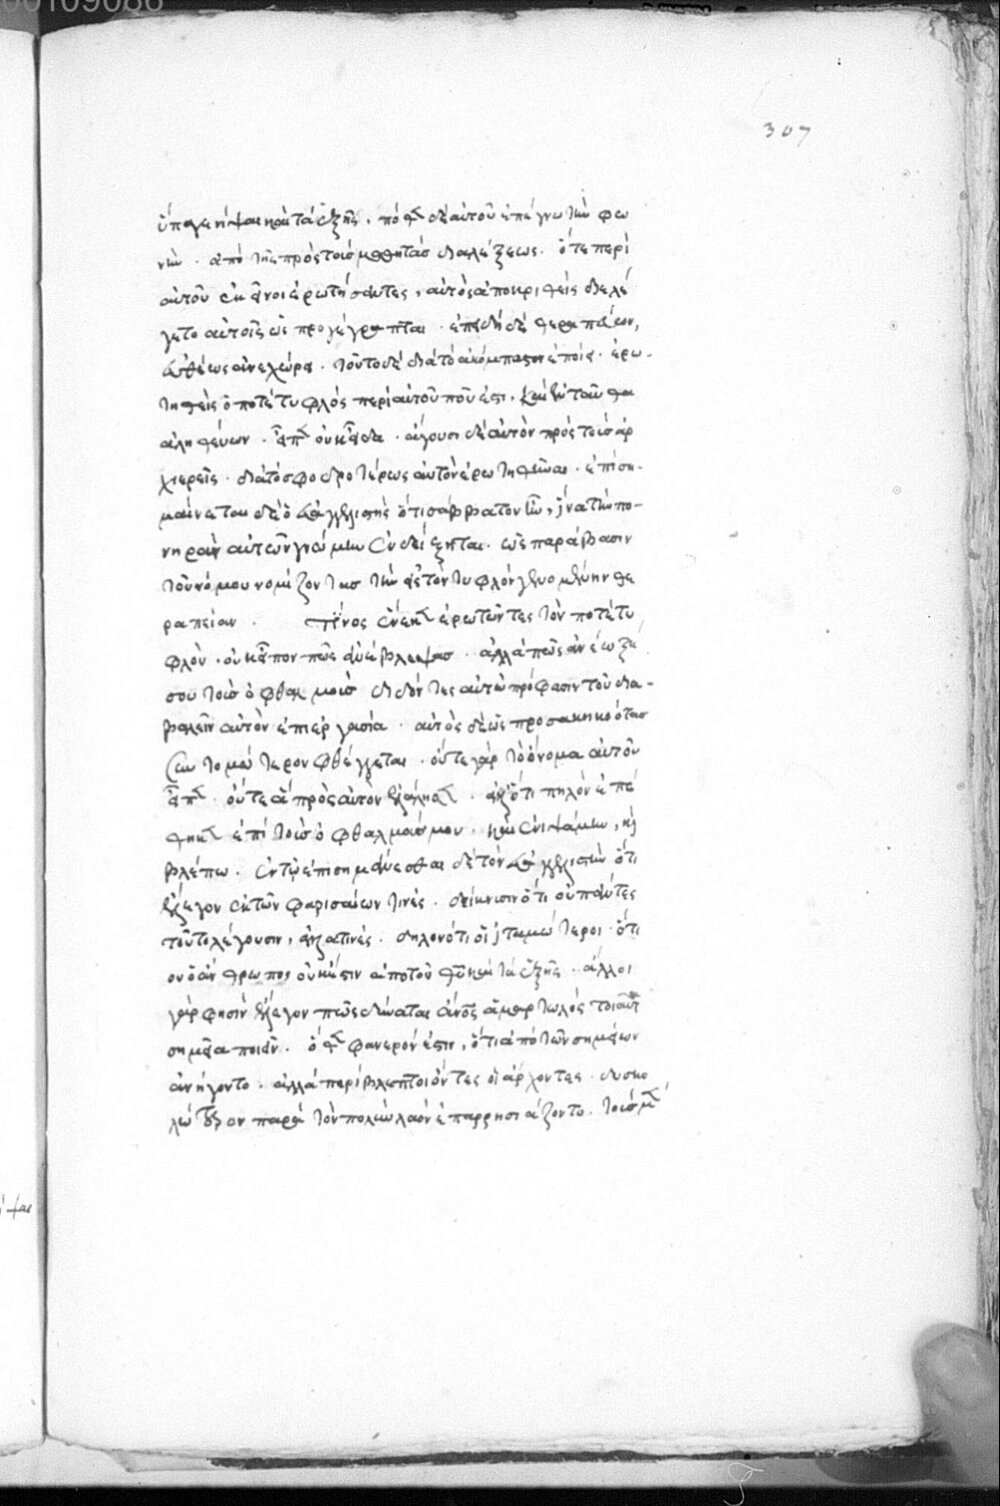 00109086
307
ὕπαγε νίψαι καὶ τὰ ἑξῆς. πόθεν δὲ αὐτοῦ ἐπέγνω τὴν φω
νήν. ἀπὸ τῆς πρὸς τοὺς μαθητὰς διαλέξεως. ὅτε περὶ
αὐτοῦ ἐκεῖνοι ἐρωτήσαντες, αὐτὸς ἀποκριθεὶς διελέ
γετο αὐτοῖς ὡς προγέγραπται. ἐπειδὴ δὲ θεραπεύων,
εὐθέως ἀνεχώρει. τοῦτο δὲ διὰ τὸ ἀκόμπαστον ἐποίει. ἐρω-
τηθεὶς ὁ ποτὲ τυφλὸς περὶ αὐτοῦ ποῦ ἐστι, κἀνταῦθα
ἀληθεύων. εἶπεν οὐκ οἶδα. ἄγουσι δὲ αὐτὸν πρὸς τοὺς ἀρ
χιερεῖς. διὰ τὸ σφοδροτέρως αὐτὸν ἐρωτηθῆναι. ἐπιση-
μαίνεται δὲ ὁ εὐαγγελιστὴς ὅτι σάββατον ἦν, ἵνα τὴν πο-
νηρὰν αὐτῶν γνώμην ἐνδείξηται. ὡς παράβασιν
τοῦ νόμου νομίζοντας τὴν εἰς τὸν τυφλὸν γενομένην θε
ραπείαν. τίνος ἕνεκεν ἐρωτῶντες τὸν ποτὲ τυ
φλὸν. οὐκ εἶπον πῶς ἀνέβλεψας. ἀλλὰ πῶς ἀνέωξέ
σου τοὺς ὀφθαλμούς διδόντες αὐτῷ πρόφασιν τοῦ δια-
βαλεῖν αὐτὸν ἐπιεργασία. αὐτὸς δὲ ὡς προσακηκοότας
συντομώτερον φθέγγεται. οὔτε γὰρ τὸ ὄνομα αὐτοῦ
εἶπεν. οὔτε ἃ πρὸς αὐτὸν ἐλάλησεν. ἀλλ' ὅτι πηλὸν ἐπέ
θηκεν ἐπὶ τοὺς ὀφθαλμούς μου. καὶ ἐνιψάμην, καὶ
βλέπω. ἐν τῷ ἐπισημαίνεσθαι δὲ τὸν εὐαγγελιστὴν ὅτι
ἔλεγον ἐκ τῶν φαρισαίων τινές. δείκνυσιν ὅτι οὐ πάντες
τοῦτο λέγουσιν, ἀλλά τινές. δηλονότι οἱ ἰταμώτεροι. ὅτι
ὁ ἄνθρωπος οὐκ ἔστιν ἀπὸ τοῦ θεοῦ καὶ τὰ ἑξῆς. ἄλλοι
γάρ φησιν ἔλεγον πῶς δύναται ἄνος ἁμαρτωλὸς τοιαῦτα
σημεῖα ποιεῖν. ὅθεν φανερόν ἐστιν, ὅτι ἀπὸ τῶν σημείων
ἀνήγοντο. ἀλλὰ περίβλεπτοι ὄντες οἱ ἄρχοντες. δυσκο
λώτερον παρὰ τὸν πολὺν λαὸν ἐπαρρησιάζοντο. τοῖς μὲν